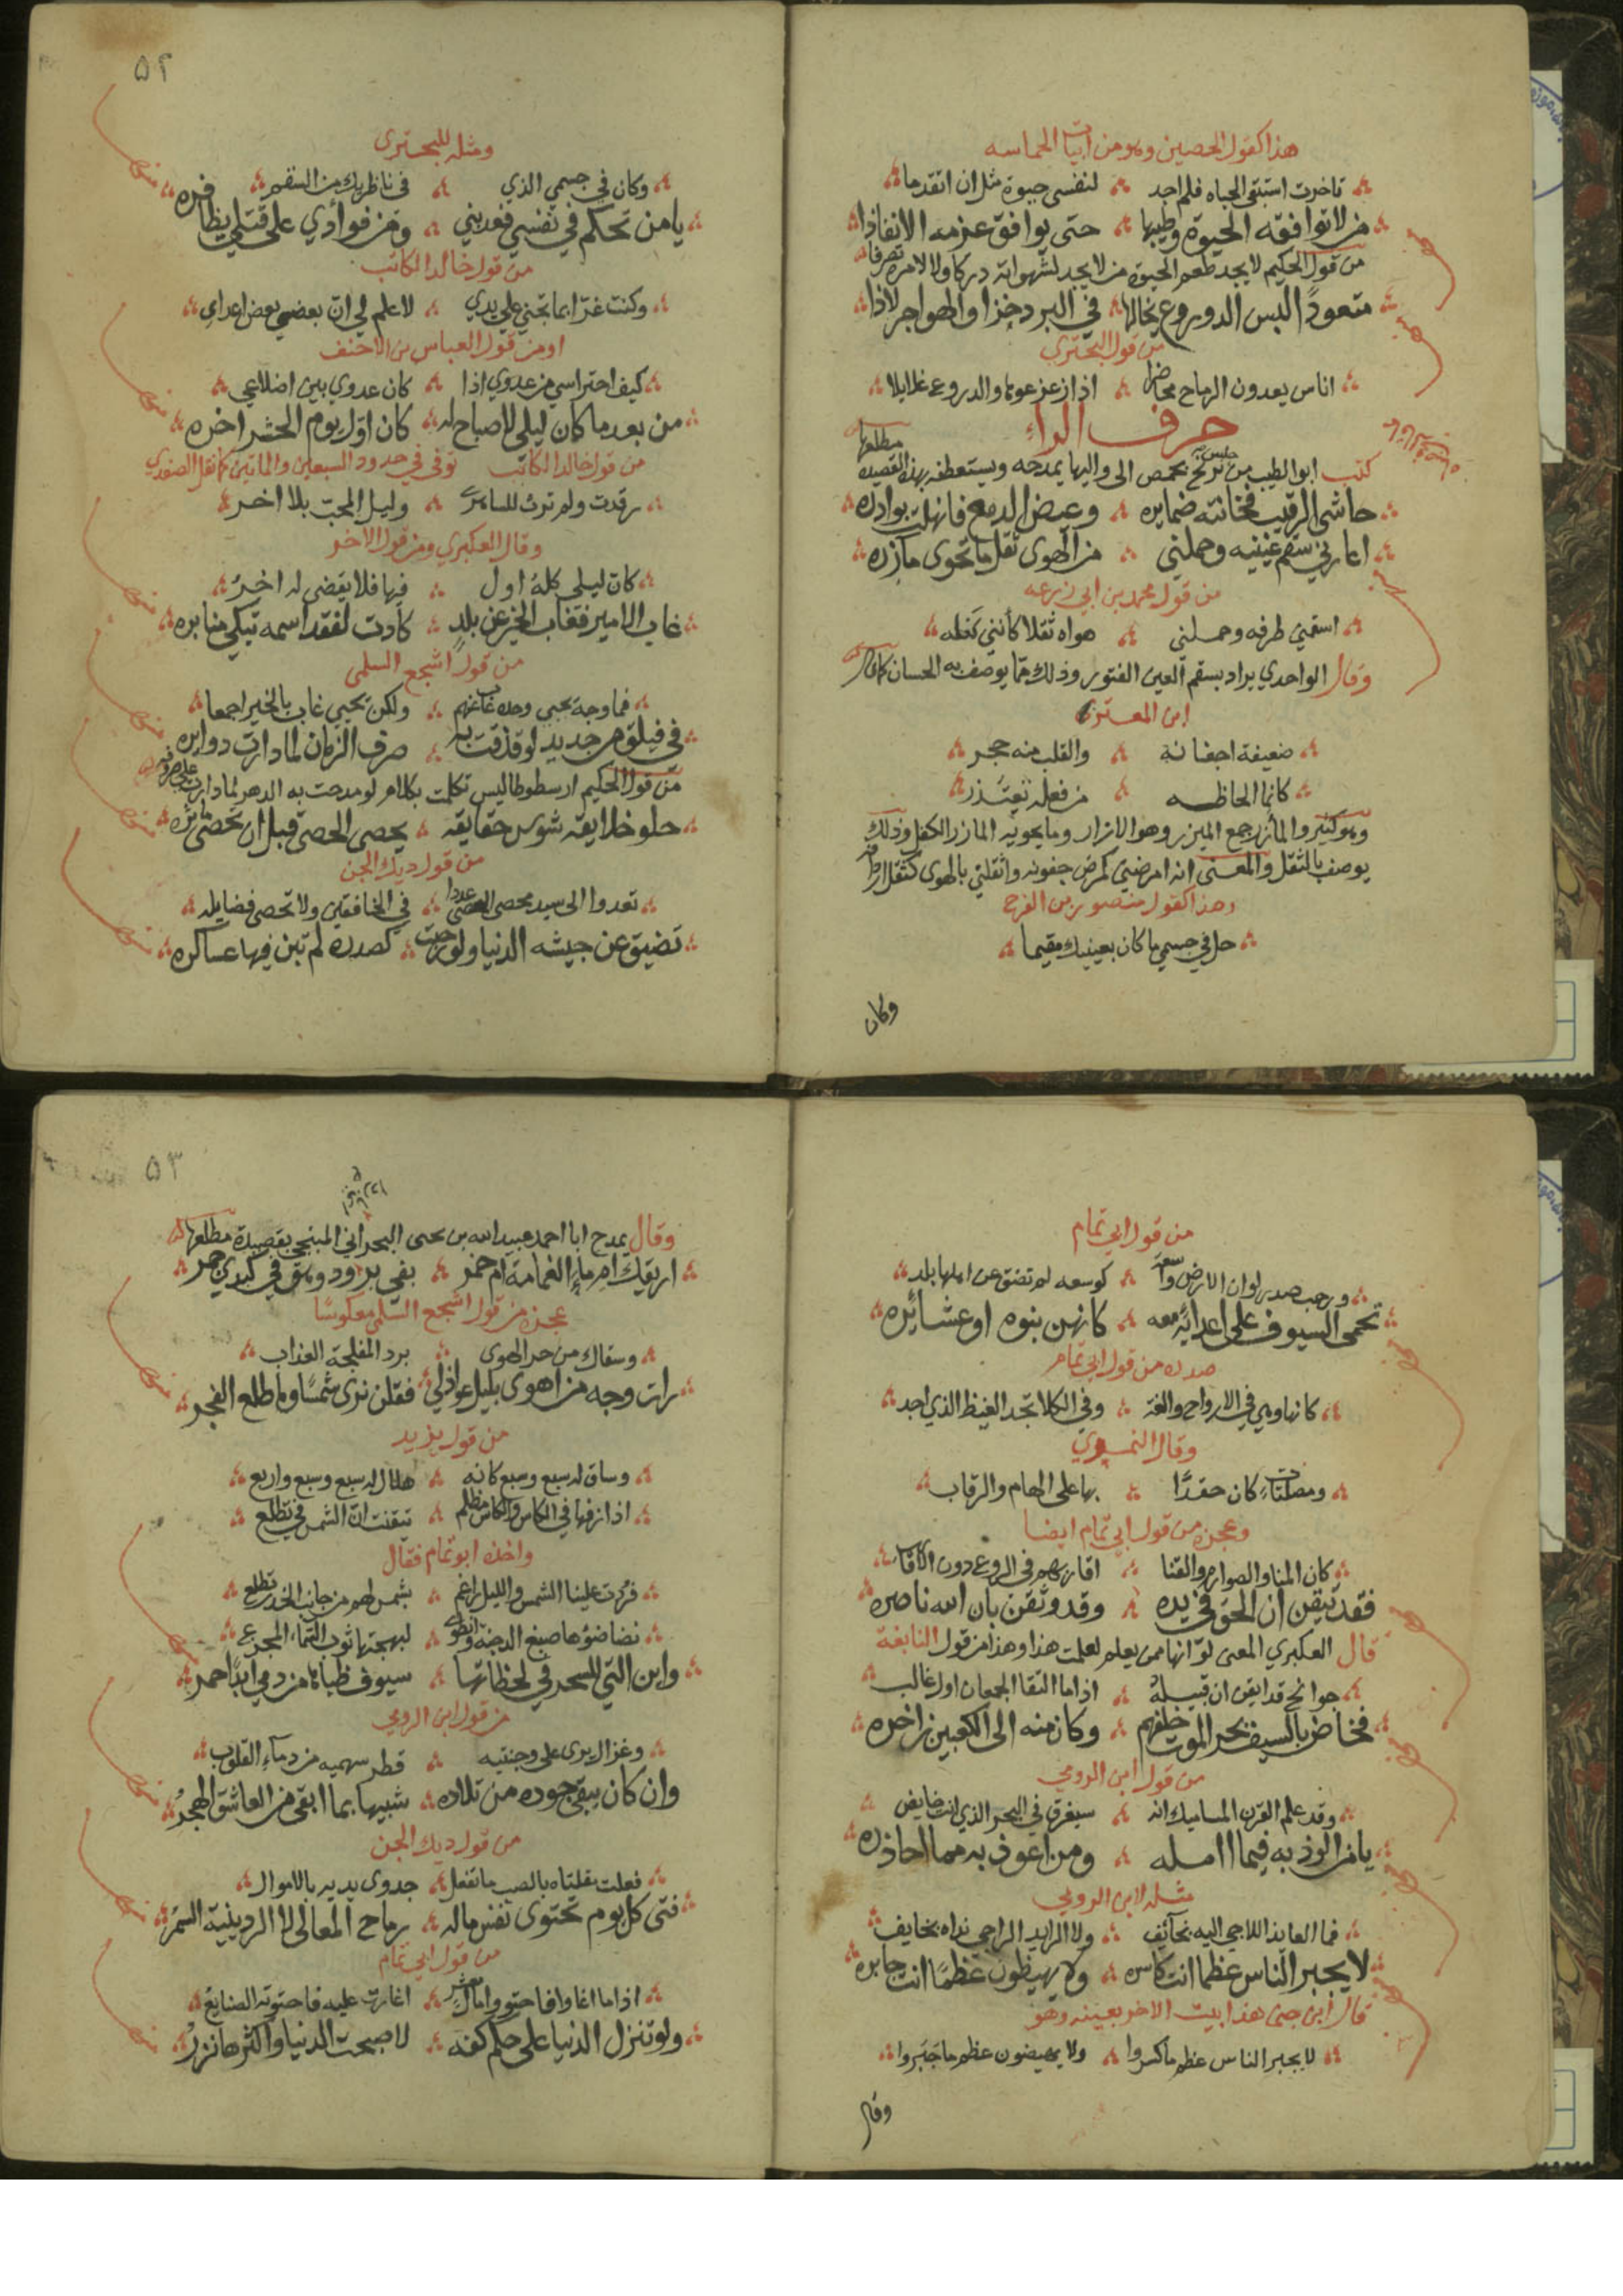 هذا كقول الحصين وهو من ابيات الحماسه
تاخرت استبقى الحياه فلم اجد لنفسى حيوة مثل ان اتقدما
من لا توافقه الحيوة وطيبها حتى يوافق عزمه الانفاذا
من قول الحكيم لا يجد طعم الحيوة من لا يجد لشهواته دركا ولا لامره تصرفا
متعودًا لبس الدروع يخالها في البرد خزا والهواجر لاذا
من قول البحتري
اناس يعدون الرماح مخاضرا اذا زعزعوها والدروع غلايلا
حرف الراء
كتب ابو الطيب من حبس بحمص الى واليها يمدحه ويستعطفه بهذه القصيده مطلعها
حاشى الرقيب فخانته ضمايره وغيض الدمع فانهلت بوادره
اعارني سقم عينيه وحملني من الهوى ثقل ما تحوى مآزره
من قول محمد بن ابي زرعه
اسقمنى طرفه وحملنى هواه ثقلا كأننى كفله
وقال الواحدي يراد بسقم العين الفتور وذلك مما يوصف به الحسان كما قال
ابن المعتز
ضعيفة اجفانه والقلب منه حجر
كانما الحاظه من فعله تعتذر
وهو كثير والمأزر جمع الميزر وهو الازار وما يحويه المازر الكفل وذلك
يوصف بالثقل والمعنى انه امرضني كمرض جفونه واثقلني بالهوى كثقل اردافه
وهذا كقول منصور بن الفرج
حل في جسمي ما كان بعينيك مقيما
وكان
۵۲
ومثله للبحترى
وكان في جسمي الذي فى ناظريك من السقم
يا من تحكم في نفسي فعذبني ومن فوأدي على قتلي يظافره
من قول خالد الكاتب
وكنت غرّا بما تجني على يدي لا علم لي انّ بعضي بعض اعداي
او من قول العباس بن الاحنف
كيف احتراسي من عدوي اذا كان عدوي بين اضلاعي
من بعد ما كان ليلى لا صباح له كان اوّل يوم الحشر اخره
من قول خالد الكاتب توفى في حدود السبعين والماتين كما نقل الصفدي
رقدت ولم ترث للساهر وليل المحب بلا اخر
وقال العكبري ومن قول الاخر
كان ليلى كله اول فيها فلا يقضى له اخر
غاب الامير فغاب الخير عن بلدٍ كادت لفقد اسمه تبكي منابره
من قول اشجع السلمى
فما وجه يحيى وحده غاب عنهم ولكن يحيى غاب بالخير اجمعا
في فيلق من حديد لو قذفت به صرف الزمان لما دارت دوايره
من قول الحكيم ارسطوطاليس تكلمت بكلام لو مدحت به الدهر لما دارت على صروفه
حلو خلايقه شوس حقايقه يحصى الحصى قبل ان تحصى مآثره
من قول ديك الجن
تعدوا الى سيد محصى الحصى عددا في الخافقين ولا تحصى فضايله
تضيق عن جيشه الدنيا ولو رحبت كصدره لم تبن فيها عساكره
من قول ابي تمام
ورحب صدر لو ان الارض واسعة كوسعه لم تضق عن اهلها بلد
تحمى السيوف على اعدائه معه كانهن بنوه او عشائره
صدره من قول ابي تمام
كانها وهي في الارواح والغة وفي الكلا تجد الغيظ الذي اجد
وقال النميري
ومصلتات كان حقدًا بها على الهام والرقاب
وعجزه من قول ابي تمام ايضا
كان المنايا والصوارم والقنا اقاربهم في الروع دون الاقارب
فقد تيقن ان الحق في يده وقد وثقن بان الله ناصره
قال العكبري المعنى لو انها ممن يعلم لعلمت هذا وهذا من قول النابغة
جوانح قد ايقن ان قبيله اذا ما التقا الجمعان اول غالب
فخاض بالسيف بحر الموت خلفهم وكان منه الى الكعبين زاخره
من قول ابن الرومي
وقد علم القرن المساميك انه سيغرق في البحر الذي انت خايض
يا من الوذ به فيما اامله ومن اعوذ به مما احاذره
مثله لابن الرومي
فما العايذ اللاجي اليه بخآئف ولا الرايد الراجي نداه بخايف
لا يجبر الناس عظما انت كاسره ولا يهيضون عظمًا انت جابره
قال ابن جنى هذا بيت الاخر بعينه وهو
لا يجبر الناس عظم ما كسروا ولا يهيضون عظم ما جَبَروا
وقال
۵۳
وقال يمدح ابا احمد عبيد الله بن يحيى البحراني المنبجي بقصيدة مطلعها
اريقك ام ماء الغمامة ام خمر بفى برود وهو في كبدي جمر
عجزه من قول اشجع السلمي معكوسًا
وسقاك من حر الهوى برد المفلجة العذاب
رات وجه من اهوى بليل عواذلي فقلن نرى شمسًا وما طلع الفجر
من قول يزيد
وساق له سبع وسبع كانه هلال له سبع وسبع واربع
اذا زفها في الكاس والكاس مظلم تيقنت انّ الشمس في تطلع
واخذه ابو تمام فقال
فردت علينا الشمس والليل راغم بشمس لهم من جانب الخدر تطلع
نضا ضوءها صبغ الدجنة وانطوى لبهجتها ثوب السماء المجزع
واين التي للسحر في لحظاتها سيوف ظباها من دمي ابدًا حمر
من قول ابن الرومي
وغزال يرى على وجنتيه قطر سهميه من دمآء القلوب
وان كان يبقى جوده من تلاده شبيها بما ابقى من العاشق الهجرُ
من قول ديك الجن
فعلت مقلتاه بالصب ما تفعل جدوى يديه بالاموال
فتى كل يوم تحتوى نفس ماله رماح المعالى لا الردينية السمر
من قول ابي تمام
اذا ما اغاروا فاحتووا مال معشر اغارت عليه فاحتوته الصنايع
ولو تنزل الدنيا على حكم كفه لاصبحت الدنيا واكثرها نزر